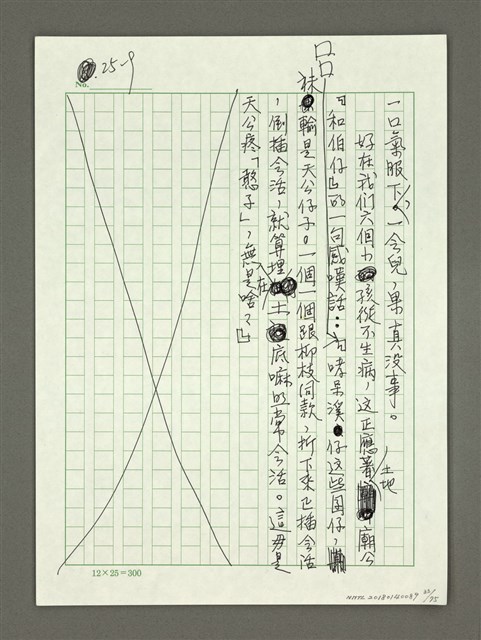 25-9
No.
一口氣服下，一会兒，果真没事。
好在我们六個小孩從不生病，这正應著土地廟公
『和伯仔』的一句感嘆話：『哮呆溪仔这些囝仔，
袜輸是天公仔子。一個一個跟柳枝仝款，折下來正插会活
，倒插会活，就算埋在土底嘛的常会活。這毋是
天公疼「憨子」，無是啥？』
12×25=300
NMTL20180140089 22/75